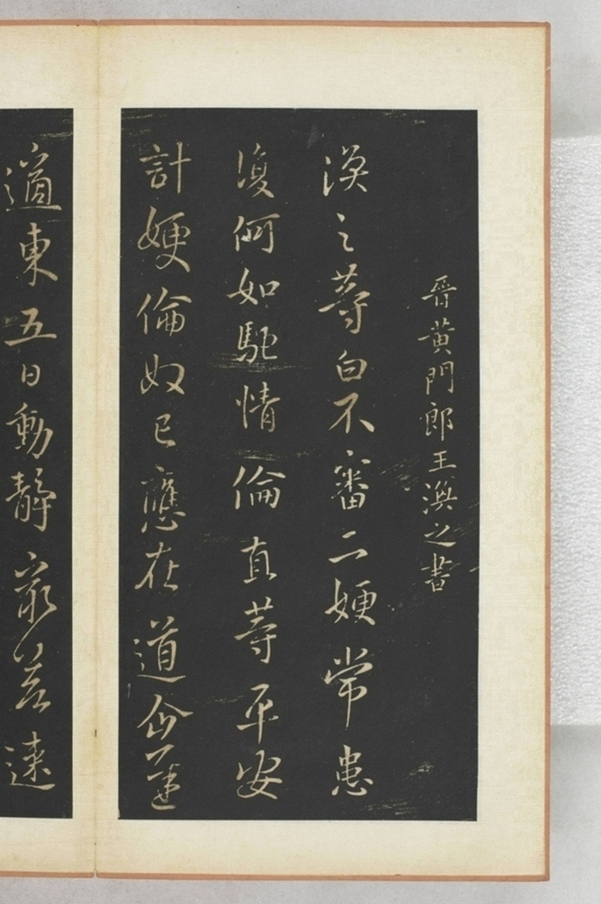 晉黃門郎王渙之書
渙之等白不審二嫂常患
復何如馳情倫直等平安
計嫂倫奴已應在道企遲
東五日動靜差速